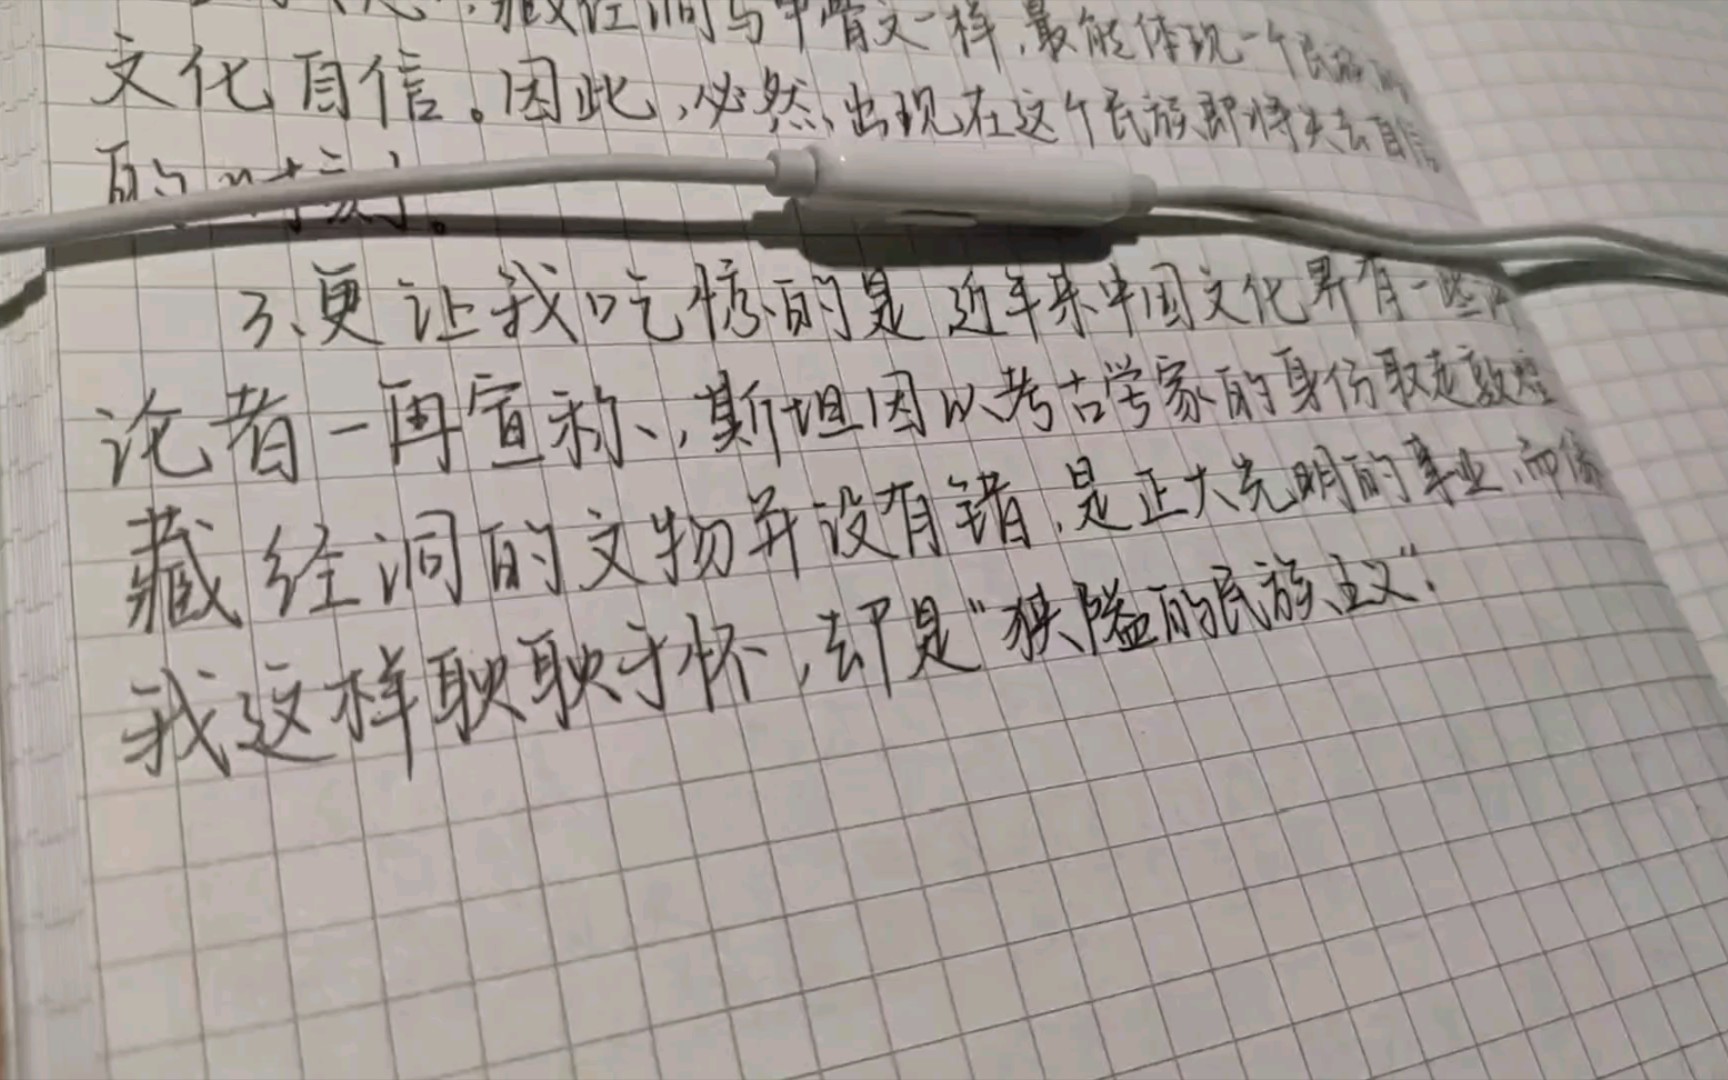 藏经洞与甲骨文一样,最能体现一个民族的
文化自信。因此,必然出现在这个民族即将失去自信
的时刻。
3、更让我吃惊的是近年来中国文化界有一些
论者一再宣称、,斯坦因以考古学家的身份取走敦煌
藏经洞的文物并没有错,是正大光明的事业,而像
我这样耿耿于怀,却是“狭隘的民族主义”.